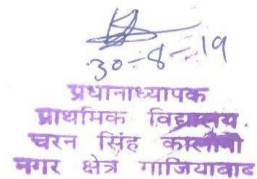 30-8-19
प्रधानाध्यापक
प्राथमिक विद्यालय
चरन सिंह कालोनी
नगर क्षेत्र गाजियाबाद